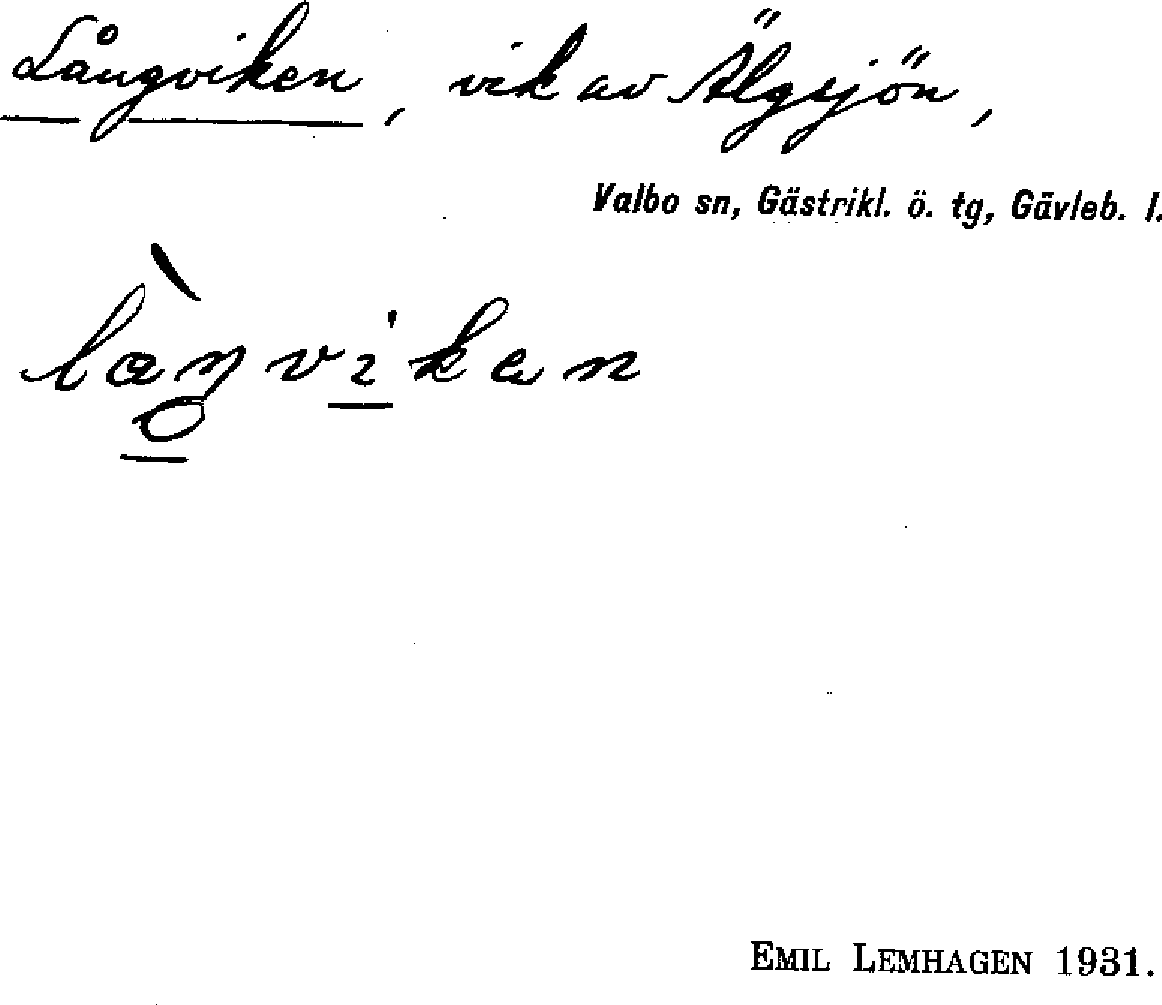 Långviken, vik av Älgsjön,
Valbo sn, Gästrikl. ö. tg, Gävleb. l.
làŋvikən
EMIL LEMHAGEN 1931.